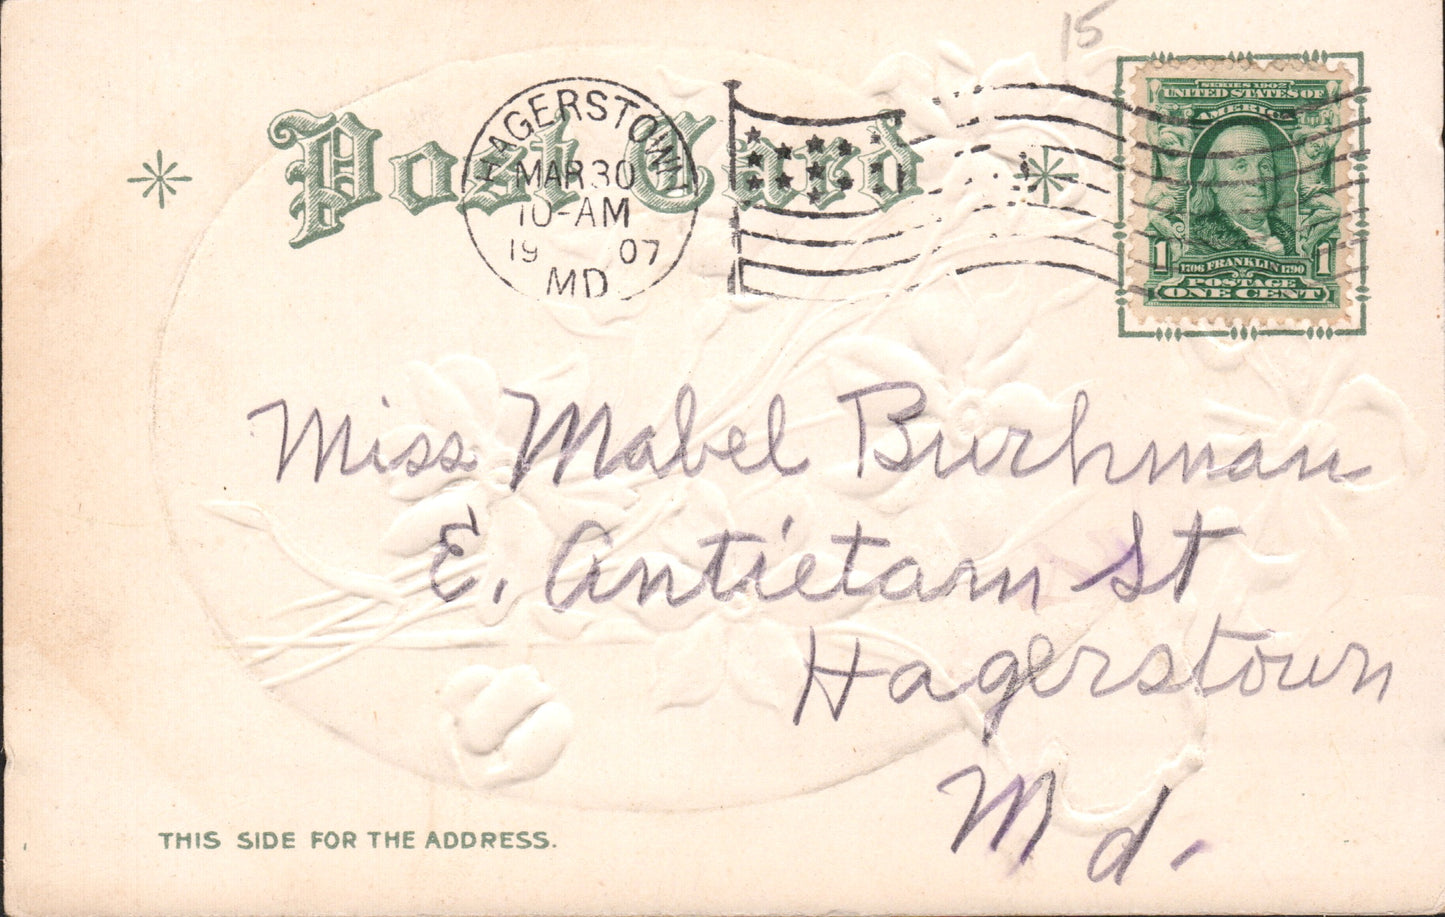 15
Post Card
HAGERSTOWN
MAR 30
10-AM
1907
MD
SERIES 1902
UNITED STATES OF
AMERICA
1 1706 FRANKLIN 1790 1
POSTAGE
ONE CENT
Miss Mabel Burhman
E. Antietam St
Hagerstown
Md.
THIS SIDE FOR THE ADDRESS.